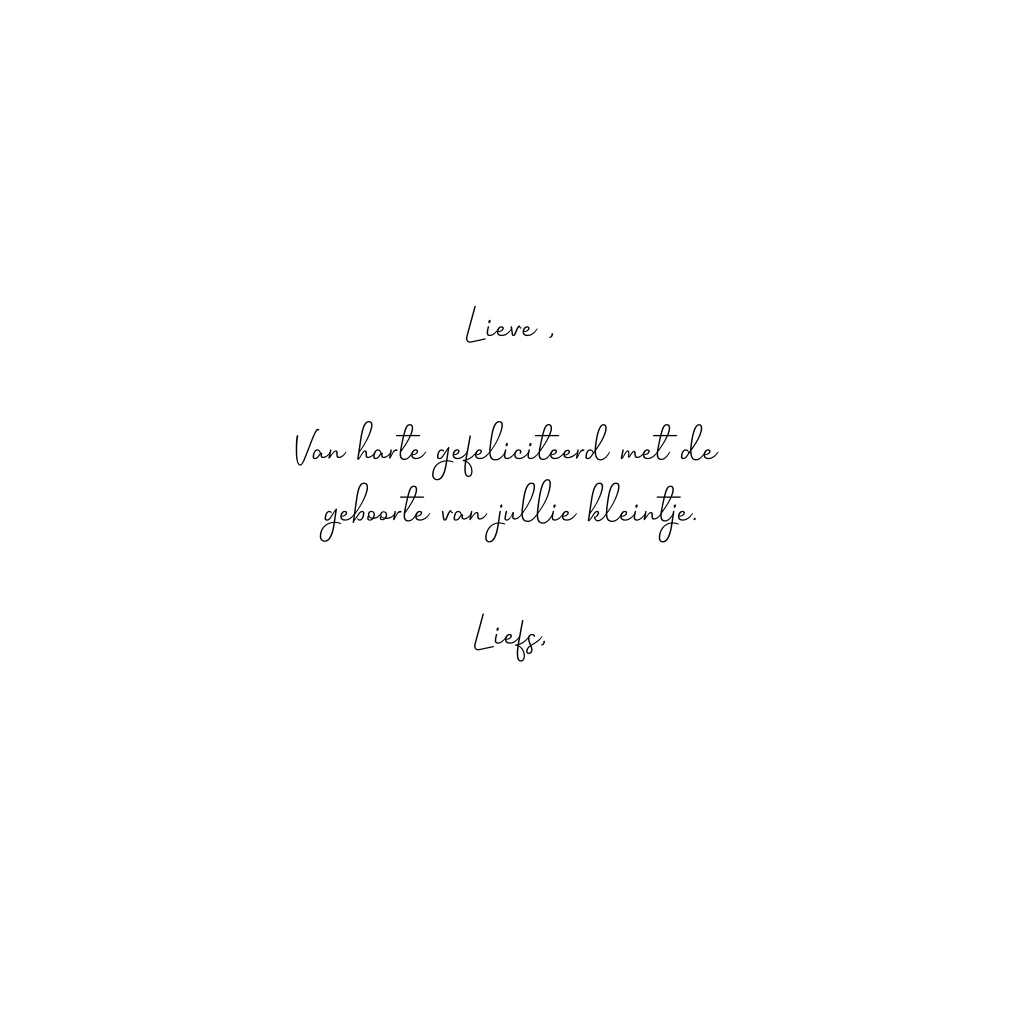 Lieve ,
Van harte gefeliciteerd met de
geboorte van jullie kleintje.
Liefs,